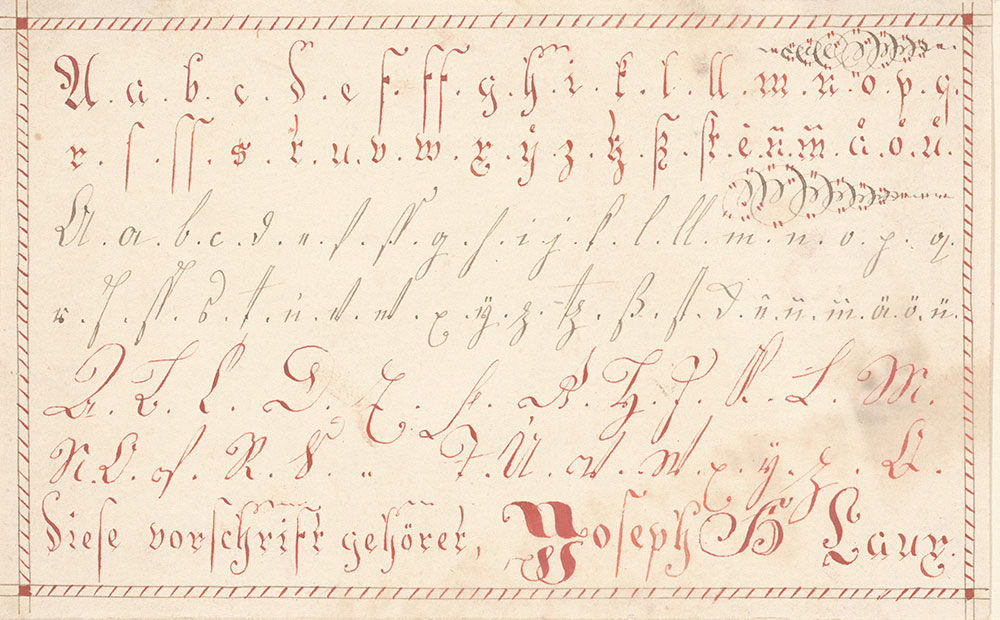 A. a. b. c. d. e. f. ff. g. h. i. k. l. ll. m. n. o. p. q.
r. ſ. ſſ. s. t. u. v. w. x. ÿ. z. tz. ß. ſt. ê. n̄. m̄. å. o̊. ů.
A. a. b. c. d. e. f. ff. g. h. i. j. k. l. ll. m. n. o. p. q.
r. ſ. ſſ. s. t. u. v. w. x. ÿ. z. tz. ß. ſt. ê. n̄. m̄. ä. ö. ü.
A. B. C. D. E. F. G. H. J. K. L. M.
N. O. P. R. S. „ T. U. V. W. X. Y. Z. Q.
Dieſe vorſchrift gehöret, Joſeph H Laux.